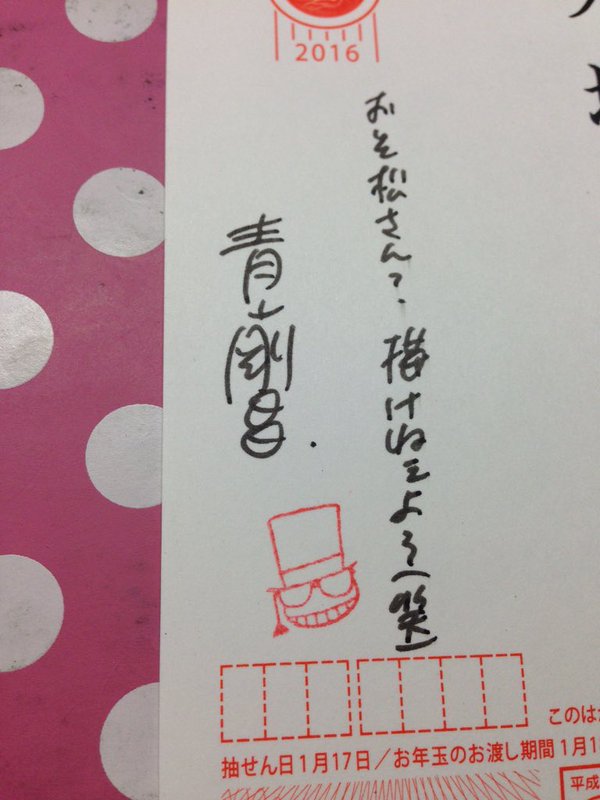 2016
おそ松さん？
描けねえよう(笑)
青山剛昌.
抽せん日1月17日／お年玉のお渡し期間 1月1
このはが
平成